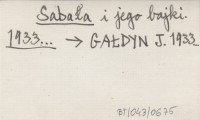 Sabała i jego bajki.
1933... → GAŁDYN J. 1933
BT/043/0675